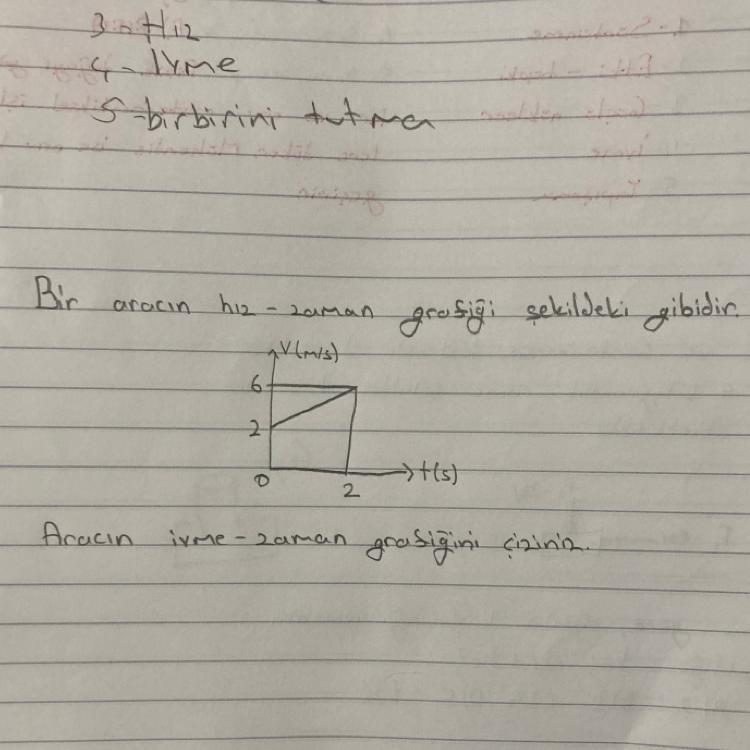 3 - Hız
4 - İvme
5 - birbirini tutma
Bir aracın hız - zaman grafiği şekildeki gibidir.
V(m/s)
6
2
0
2
t(s)
Aracın ivme - zaman grafiğini çiziniz.